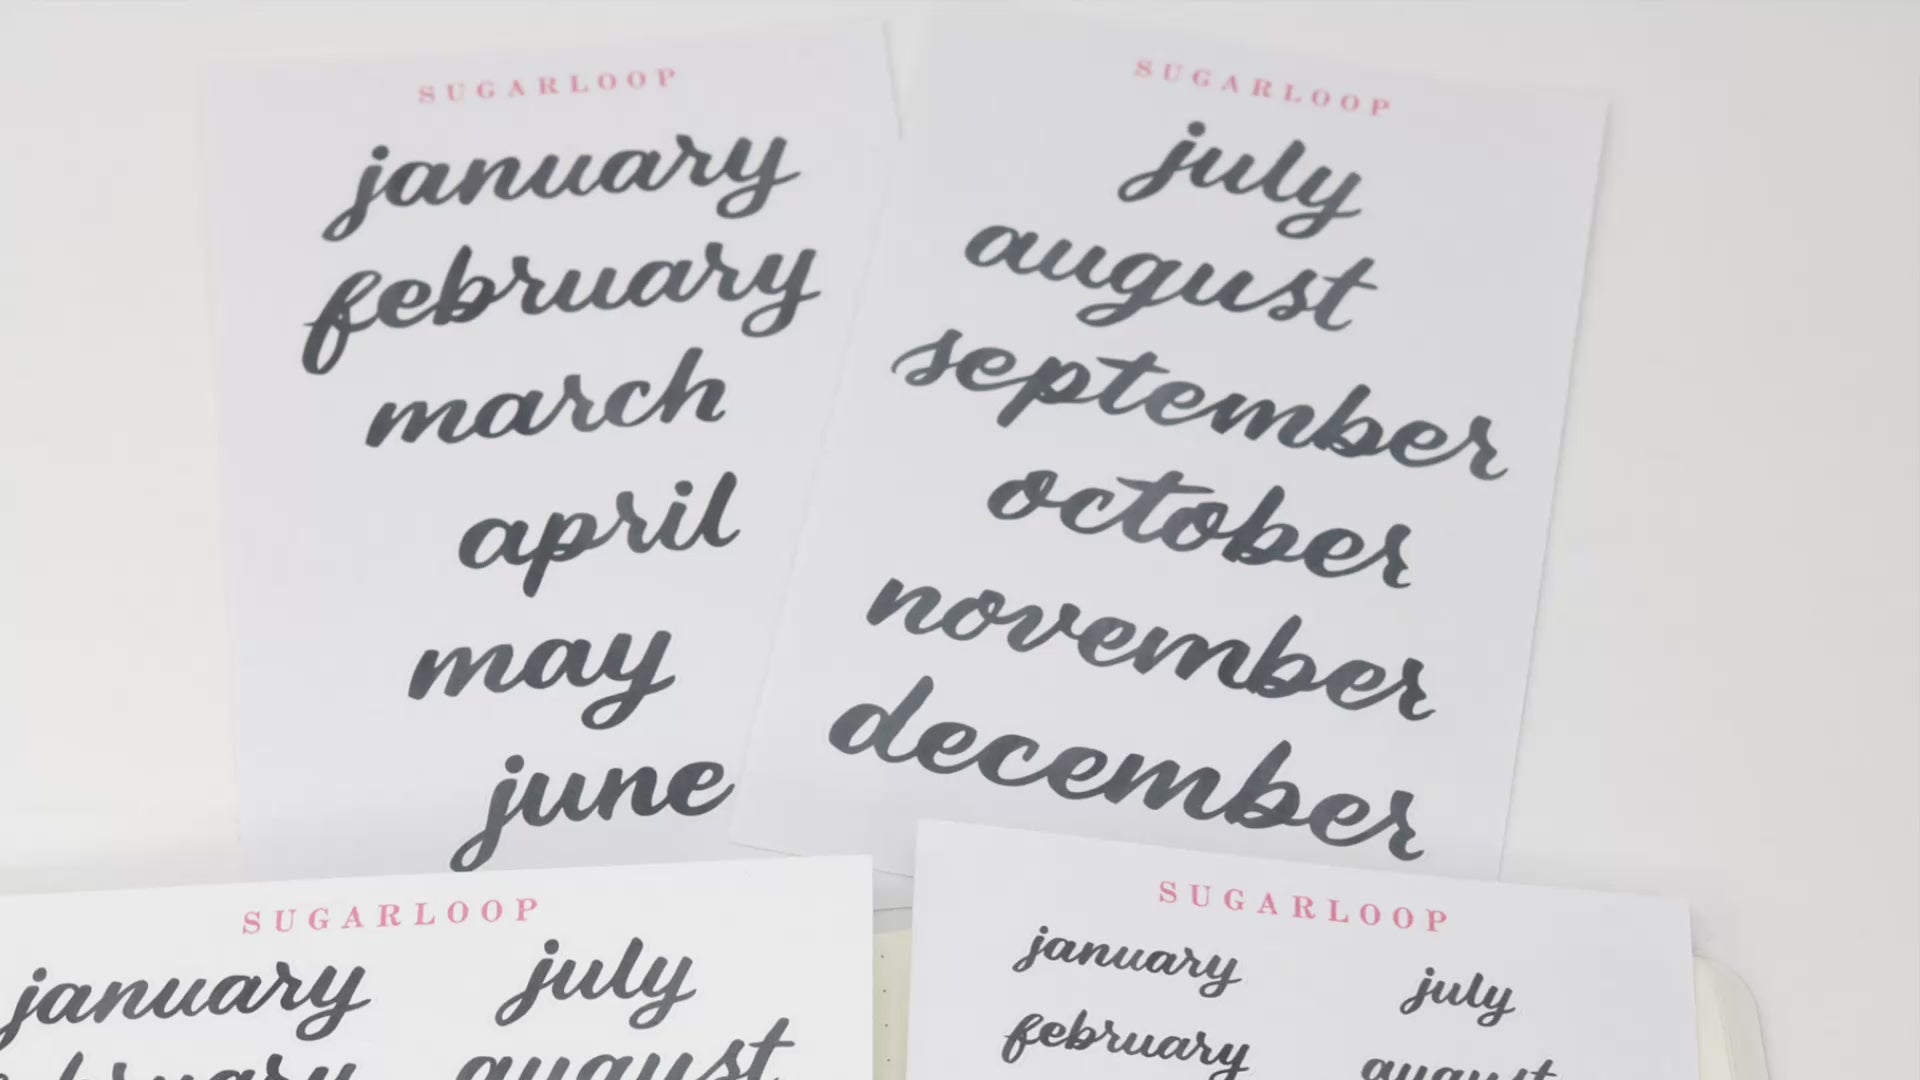 SUGARLOOP
january
february
march
april
may
june
SUGARLOOP
july
august
september
october
november
december
SUGARLOOP
january july
february august
SUGARLOOP
january july
february august